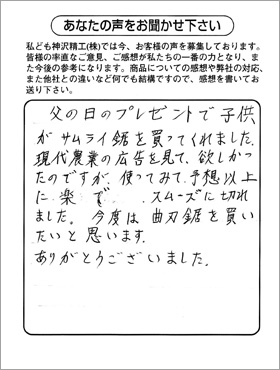 あなたの声をお聞かせ下さい
私ども神沢精工(株)では今、お客様の声を募集しております。
皆様の率直なご意見、ご感想が私たちの一番の力となり、ま
た今後の参考になります。商品についての感想や弊社の対応、
また他社との違いなど何でも結構ですので、感想を書いてお
送り下さい。
父の日のプレゼントで子供
がサムライ鋸を買ってくれました。
現代農業の広告を見て、欲しかっ
たのですが、使ってみて予想以上
に楽で スムーズに切れ
ました。今度は曲刃鋸を買い
たいと思います。
ありがとうございました。